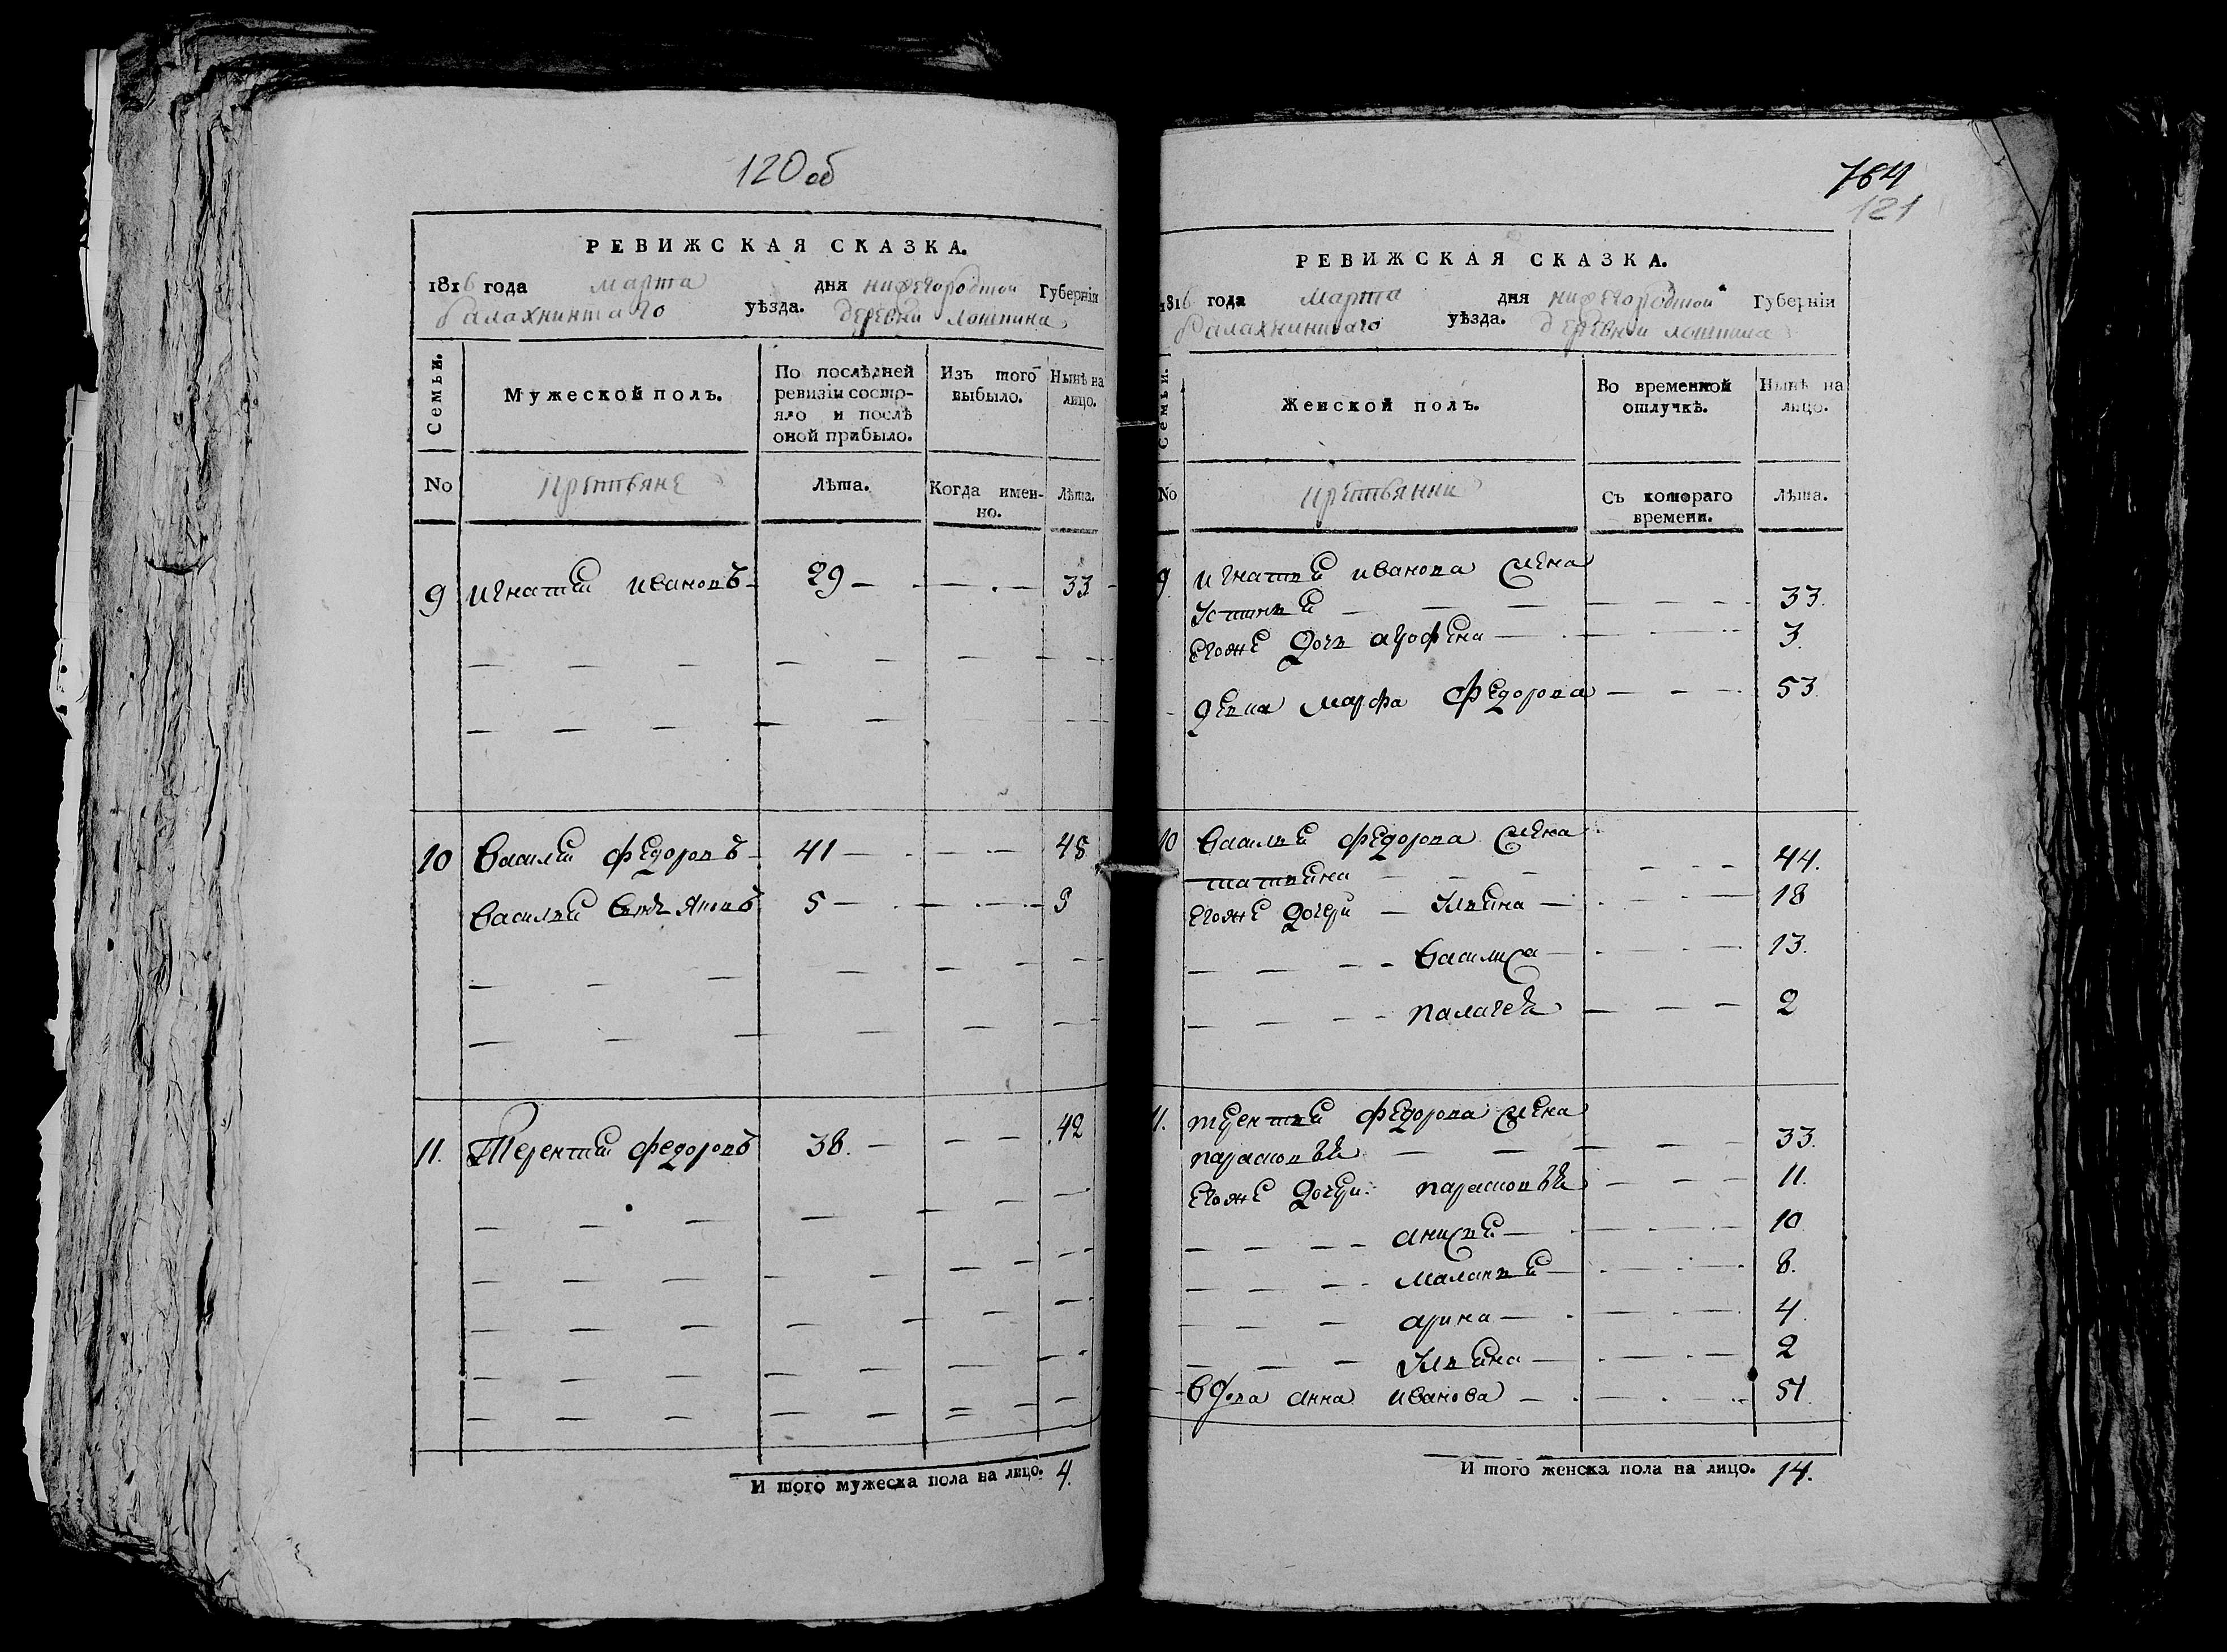 120 об
РЕВИЖСКАЯ СКАЗКА.
1816 года марта дня нижегородской Губерніи
балахнинскаго уѣзда. деревни
Семьи.
Мужеской полъ.
По послѣдней ревизіи состояло и послѣ оной прибыло.
Изъ того выбыло.
Нынѣ на лицо.
No
крестьяне
Лѣта.
Когда именно.
Лѣта.
9 игнатей ивановъ 29 — 33
10 василей федоровъ 41 — 45
василей сынъ яковъ 5 — 9
11. Терентей федоровъ 38. — 42
И того мужеска пола на лицо. 4.
764
121
РЕВИЖСКАЯ СКАЗКА.
1816 года марта дня нижегородской Губерніи
балахнинскаго уѣзда. деревни
Семьи.
Женской полъ.
Во временной отлучкѣ.
Нынѣ на лицо.
No
крестьянки
Съ котораго времени.
Лѣта.
9 игнатья иванова жена
устинья — 33.
егоже дочь аграфена — 3.
девка марфа федорова — 53.
10 василья федорова жена
татьяна — 44.
егоже дочери — ульяна — 18
василиса — 13.
палагея — 2
11. терентья федорова жена
парасковья — 33.
егоже дочери: парасковья — 11.
анисья — 10.
маланья — 8.
арина — 4.
ульяна — 2
вдова анна иванова — 51.
И того женска пола на лицо. 14.